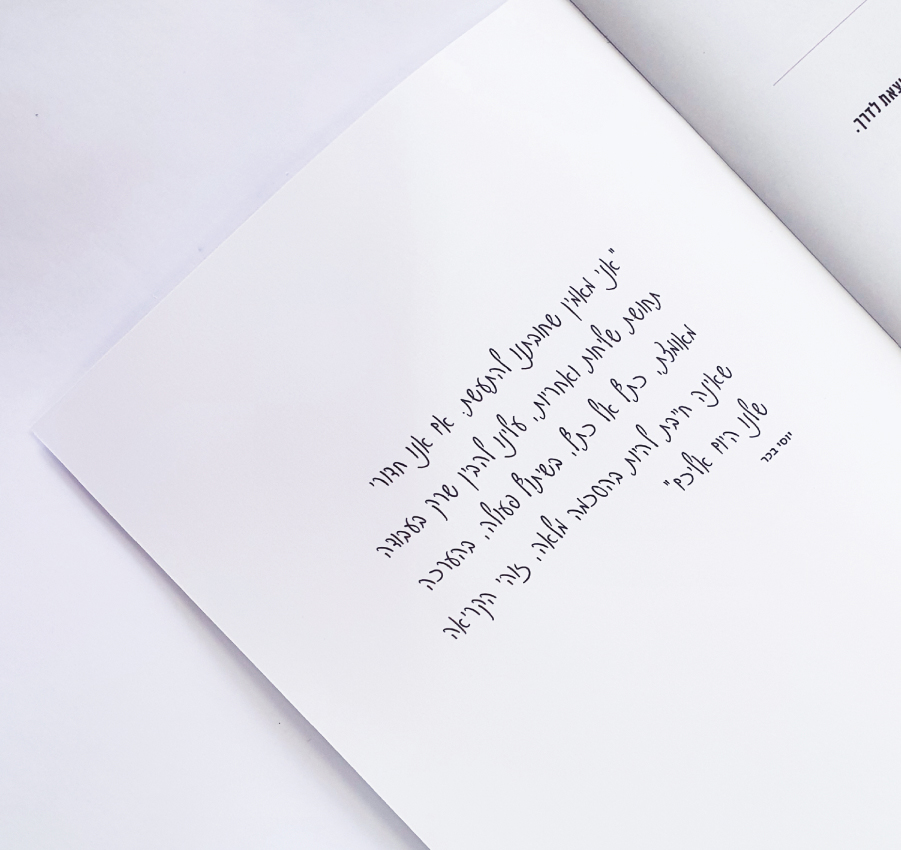 יצאת לדרך.
"אני מאמין שחובתנו להתעשת. אם אנו חדורי
תחושת שליחות ואחריות, עלינו להבין שרק בעבודה
מאומצת, כתף אל כתף, בשיתוף פעולה, בהערכה
שאינה חייבת להיות בהסכמה מלאה, זוהי הקריאה
שלנו היום אליכם"
יוסי בכר